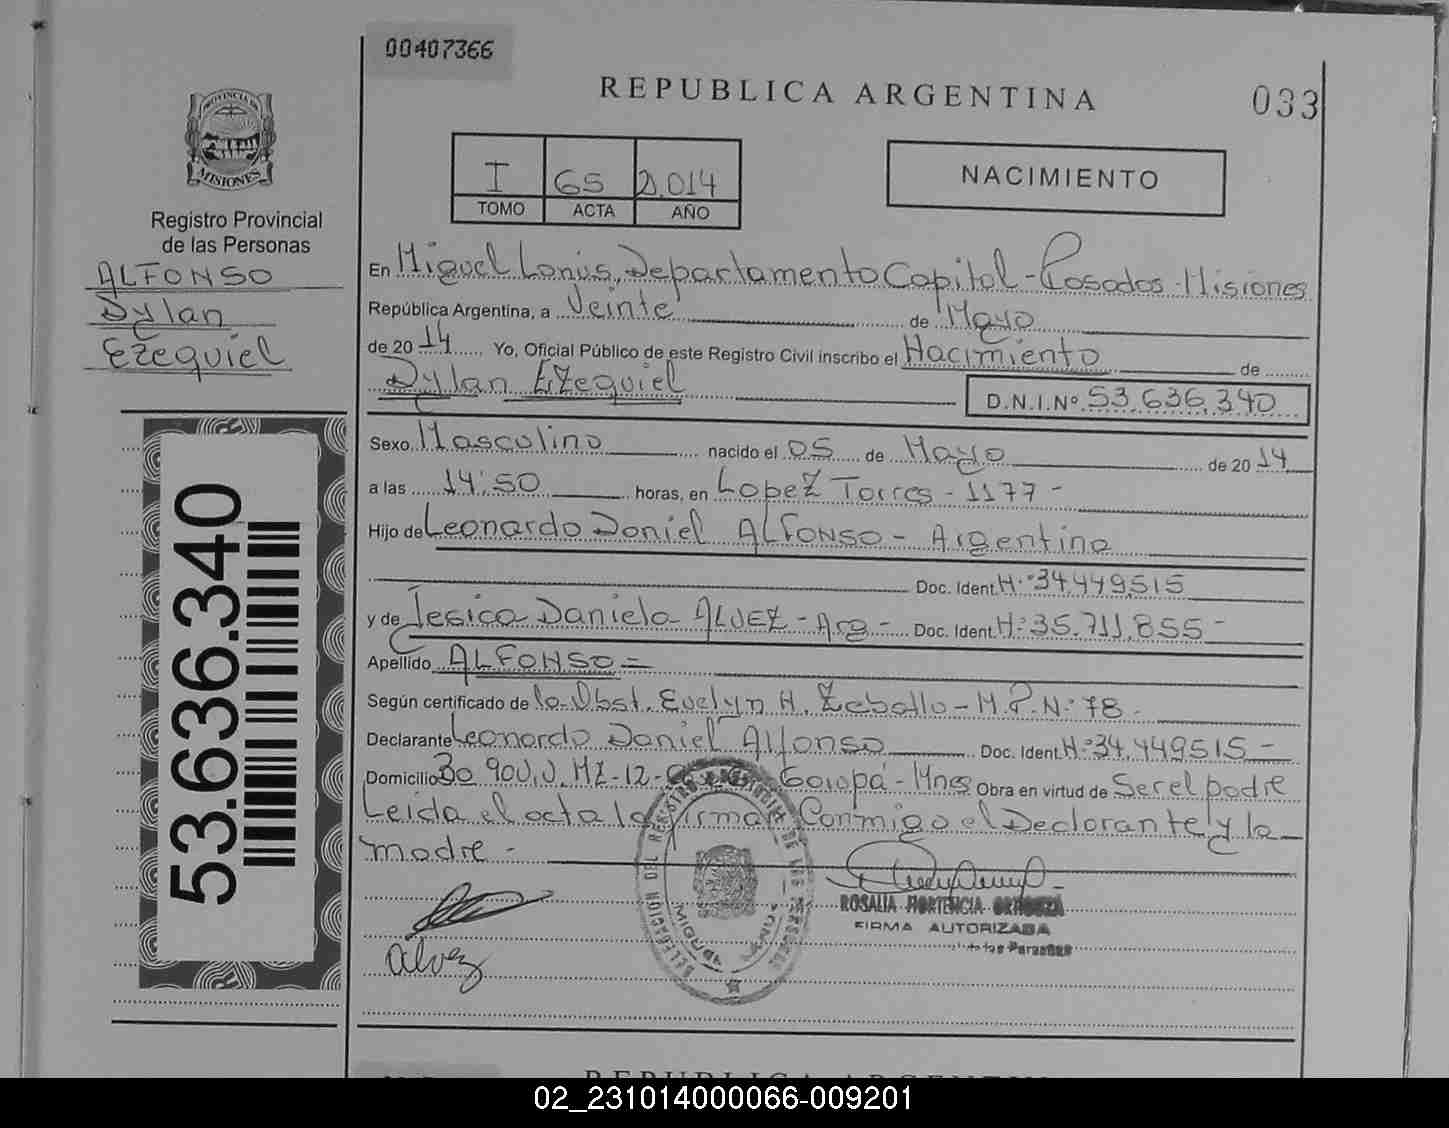 00407366
REPUBLICA ARGENTINA
033
PROVINCIA DE
MISIONES
I 65 2.014
TOMO ACTA AÑO
NACIMIENTO
Registro Provincial
de las Personas
ALFONSO
Dylan
Ezequiel
En Miguel Lanús, Departamento Capital - Posadas - Misiones
República Argentina, a Veinte de Mayo
de 2014 Yo, Oficial Público de este Registro Civil inscribo el Nacimiento de
Dylan Ezequiel
D.N.I.Nº 53.636.340
Sexo Masculino nacido el 05 de Mayo de 2014
a las 14:50 horas, en Lopez Torres - 1177 -
Hijo de Leonardo Daniel ALFONSO - Argentino
Doc. Ident. Nº 34.449515
y de Jesica Daniela ALVEZ - Arg - Doc. Ident. Nº 35.711.855 -
Apellido ALFONSO =
Según certificado de la Obst. Evelyn H. Zeballo - M.P. Nº 78 -
Declarante Leonardo Daniel Alfonso Doc. Ident. Nº 34.449515 -
Domicilio Bº 90 V.V. MZ-12- Garupá - Mnes Obra en virtud de Ser el padre
Leída el acta la firman Conmigo el Declarante y la
madre -
53.636.340
DELEGACION DEL REGISTRO PROVINCIAL DE LAS PERSONAS
ROSALIA HORTENCIA
FIRMA AUTORIZADA
de las Personas
Alvez
REPUBLICA ARGENTINA
02_231014000066-009201